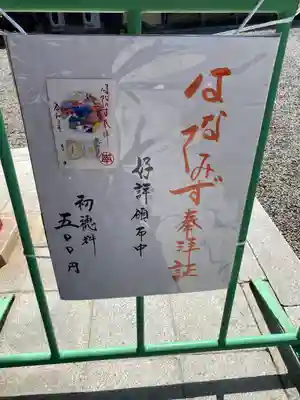 はなしみず奉拝証
好評頒布中
初穂料
五〇〇円